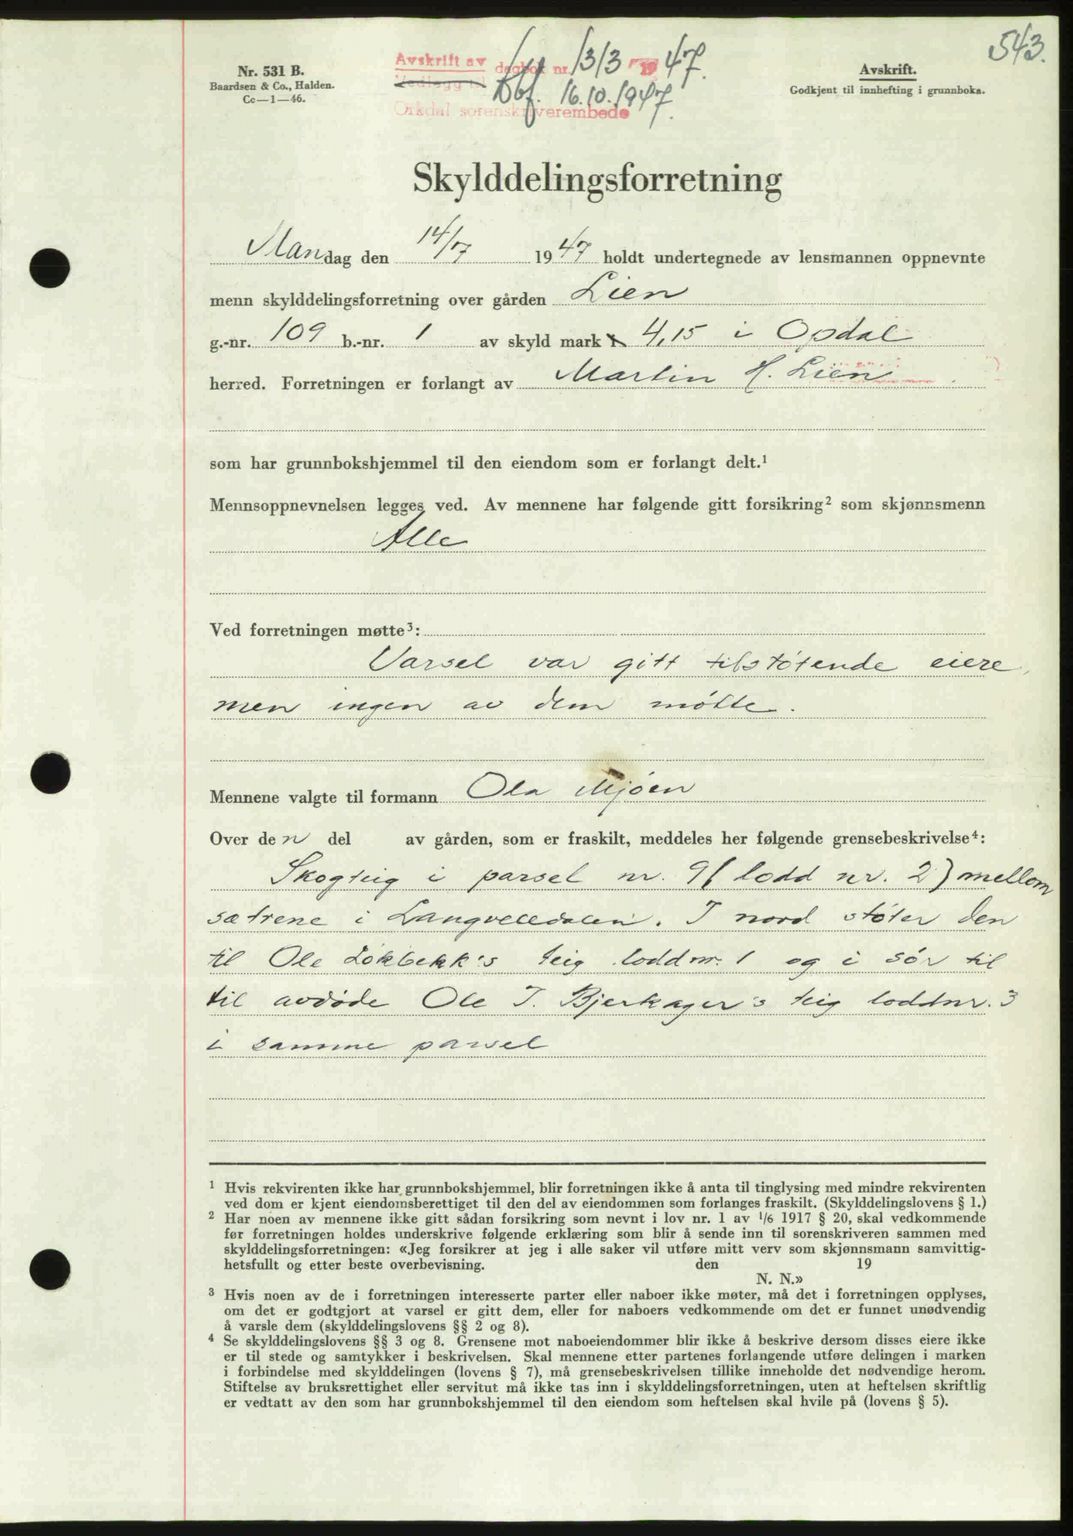 543.
Nr. 531 B.
Baardsen & Co., Halden.
Cc—1—46.
Avskrift av
Vedlegg til
dagbok nr. 1313 1947.
Dbf. 16.10.1947.
Orkdal sorenskriverembede
Avskrift.
Godkjent til innhefting i grunnboka.
Skylddelingsforretning
Mandag den 14/7 1947 holdt undertegnede av lensmannen oppnevnte
menn skylddelingsforretning over gården Lien
g.-nr. 109 b.-nr. 1 av skyld mark 4,15 i Opdal
herred. Forretningen er forlangt av Martin H. Lien
som har grunnbokshjemmel til den eiendom som er forlangt delt.¹
Mennsoppnevnelsen legges ved. Av mennene har følgende gitt forsikring² som skjønnsmenn
Alle
Ved forretningen møtte³:
Varsel var gitt tilstøtende eiere,
men ingen av dem møtte.
Mennene valgte til formann Ola Mjøen
Over den del av gården, som er fraskilt, meddeles her følgende grensebeskrivelse⁴:
Skogteig i parsel nr. 9 (lodd nr. 2) mellom
sætrene i Langvelldalen. I nord støter den
til Ole Løkbekk's teig loddnr. 1 og i sør til
til avdøde Ole J. Bjerkager's teig loddnr. 3
i samme parsel
¹ Hvis rekvirenten ikke har grunnbokshjemmel, blir forretningen ikke å anta til tinglysing med mindre rekvirenten
ved dom er kjent eiendomsberettiget til den del av eiendommen som forlanges fraskilt. (Skylddelingslovens § 1.)
² Har noen av mennene ikke gitt sådan forsikring som nevnt i lov nr. 1 av 1/6 1917 § 20, skal vedkommende
før forretningen holdes underskrive følgende erklæring som blir å sende inn til sorenskriveren sammen med
skylddelingsforretningen: «Jeg forsikrer at jeg i alle saker vil utføre mitt verv som skjønnsmann samvittig-
hetsfullt og etter beste overbevisning. den 19
N. N.»
³ Hvis noen av de i forretningen interesserte parter eller naboer ikke møter, må det i forretningen opplyses,
om det er godtgjort at varsel er gitt dem, eller for naboers vedkommende om det er funnet unødvendig
å varsle dem (skylddelingslovens §§ 2 og 8).
⁴ Se skylddelingslovens §§ 3 og 8. Grensene mot naboeiendommer blir ikke å beskrive dersom disses eiere ikke
er til stede og samtykker i beskrivelsen. Skal mennene etter partenes forlangende utføre delingen i marken
i forbindelse med skylddelingen (lovens § 7), må grensebeskrivelsen tillike inneholde det nødvendige herom.
Stiftelse av bruksrettighet eller servitut må ikke tas inn i skylddelingsforretningen, uten at heftelsen skriftlig
er vedtatt av den som har grunnbokshjemmel til den eiendom som heftelsen skal hvile på (lovens § 5).